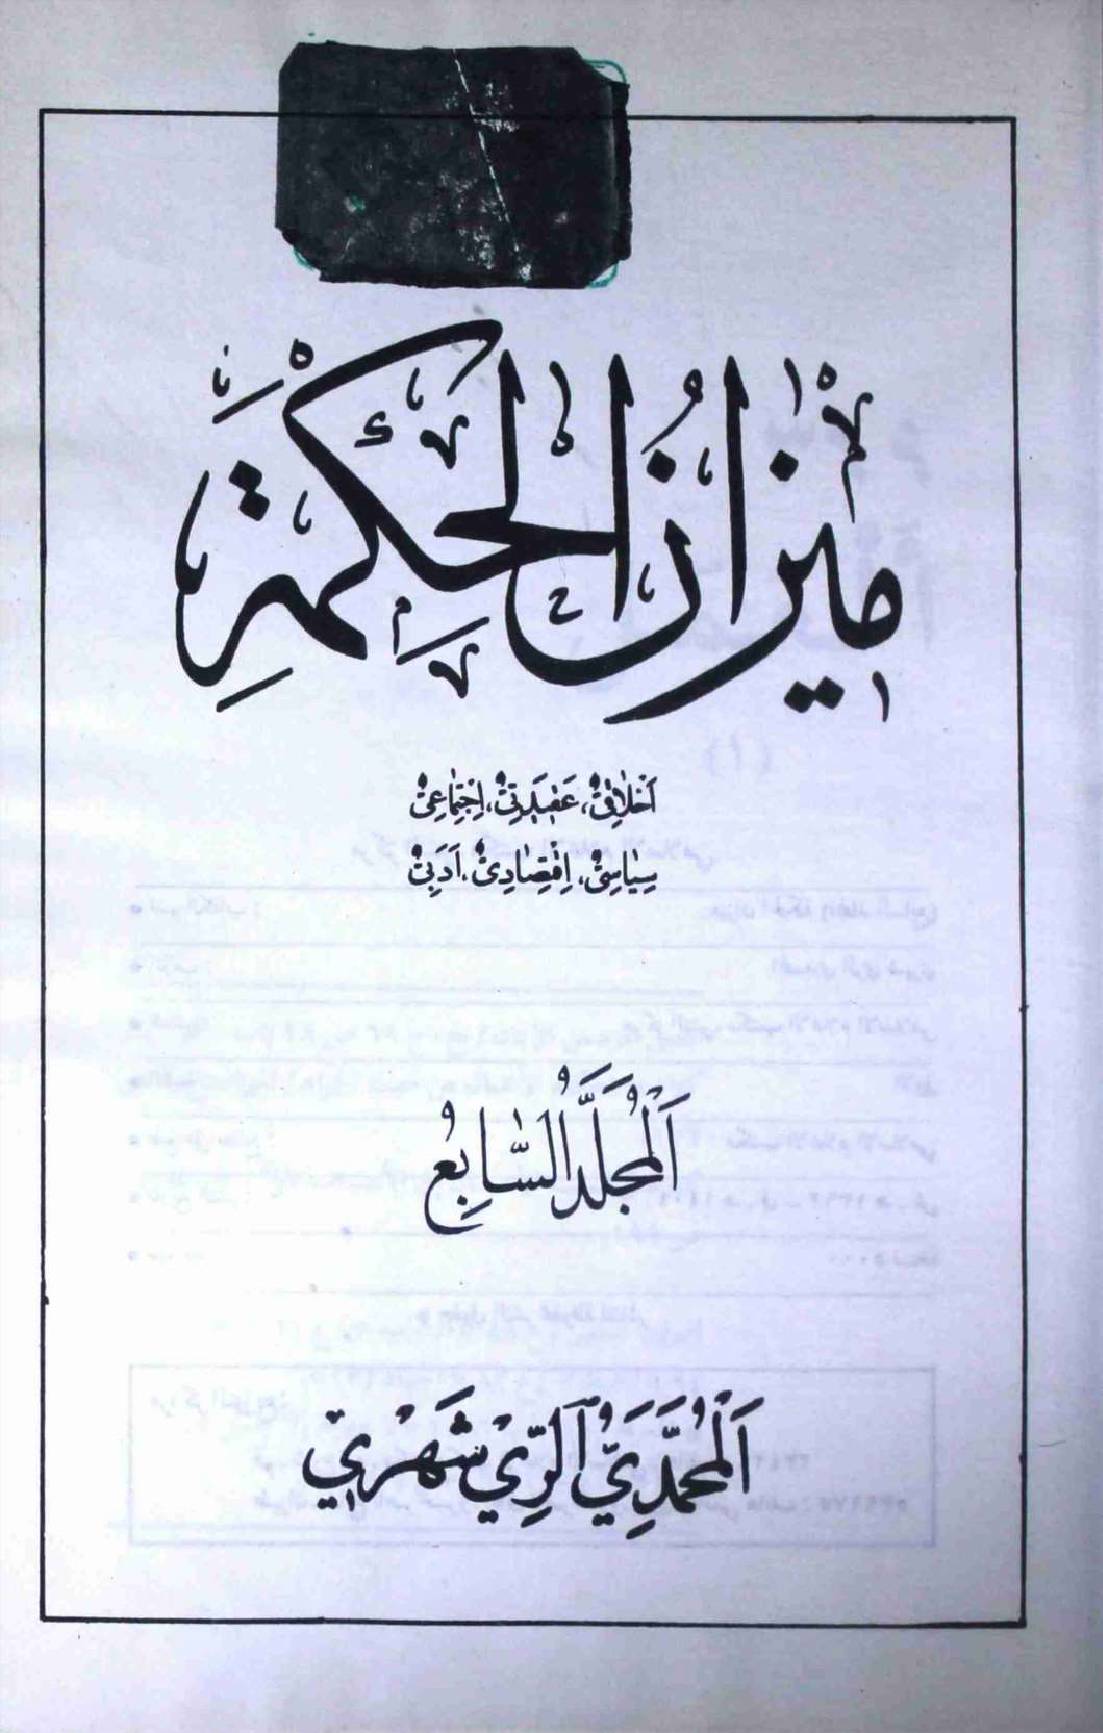 مِيزَانُ الْحِكْمَةِ
أَخْلَاقِيٌّ، عَقِيدَتِيٌّ، اِجْتِمَاعِيٌّ
سِيَاسِيٌّ، اِقْتِصَادِيٌّ، أَدَبِيٌّ
اَلْمُجَلَّدُ السَّابِعُ
اَلْمُحَمَّدِيُّ الرِّيْ شَهْرِيْ